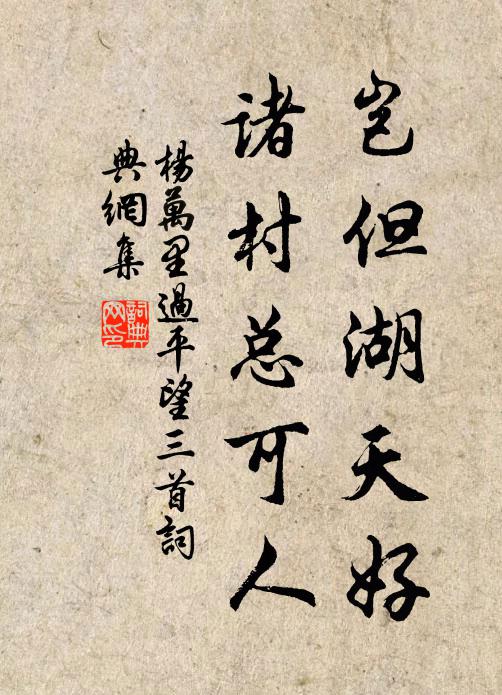 岂但湖天好
诸村总可人
楊萬里過平望三首詞
典網集
詞典网印